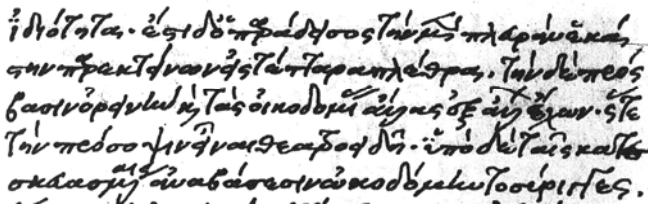 ἰδιότητας· ἔστι δ' ὁ παράδεισος τὴν μὲν πλευρὰν ἑκά
στην παρεκτείνων εἰς τέτταρα πλέθρα. τὴν δὲ πρόσ
βασιν ὀρεινὴν καὶ τὰς οἰκοδομίας ἄλλας ἐξ ἄλλων ἔχων· ὥστε
τὴν πρόσοψιν εἶναι θεατροειδῆ· ὑπὸ δὲ ταῖς κατε
σκευασμέναις ἀναβάσεσιν ὠκοδόμηντο σύριγγες.